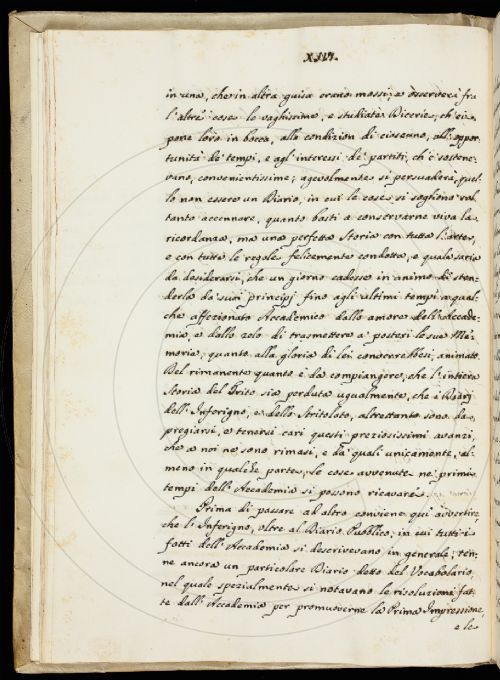 XIII.
in una, che in altra guisa erano mossi; e osserverà fra
l'altre cose le vaghissime, e studiate Dicerie, ch'ei
pone loro in bocca, alla condizion di ciascuno, all'oppor-
tunità de' tempi, e agl'interesi de' partiti, ch'e' sostene-
vano, convenientissime; agevolmente si persuaderà, quel-
lo non essere un Diario, in cui le cose si sogliono sol-
tanto accennare, quanto basti a conservarne viva la
ricordanza, ma una perfetta Storia con tutta l'arte,
e con tutte le regole felicemente condotta, e quale saria
da desiderarsi, che un giorno cadesse in animo di sten-
derla da' suoi principj fino agli ultimi tempi a qual-
che affezionato Accademico dallo amore dell'Accade-
mia, e dallo zelo di trasmettere a' posteri le sue Me-
morie, quanto alla gloria di lei converrebbesi, animato.
Del rimanente quanto è da compiangere, che l'intiera
Storia del Trito sia perduta ugualmente, che i Diarj
dell'Inferigno, e dello Stritolato, altrettanto sono da
pregiarsi, e tenersi cari questi preziosissimi avanzi,
che a noi ne sono rimasi, e da' quali unicamente, al-
meno in qualche parte, le cose avvenute ne' primi
tempi dell'Accademia si possono ricavare.
Prima di passare ad altro conviene qui avvertire,
che l'Inferigno, oltre al Diario Pubblico, in cui tutti i
fatti dell'Accademia si descrivevano in generale, ten-
ne ancora un particolare Diario detto del Vocabolario,
nel quale spezialmente si notavano le risoluzioni fat-
te dall'Accademia per promuoverne la Prima Impressione,
e le